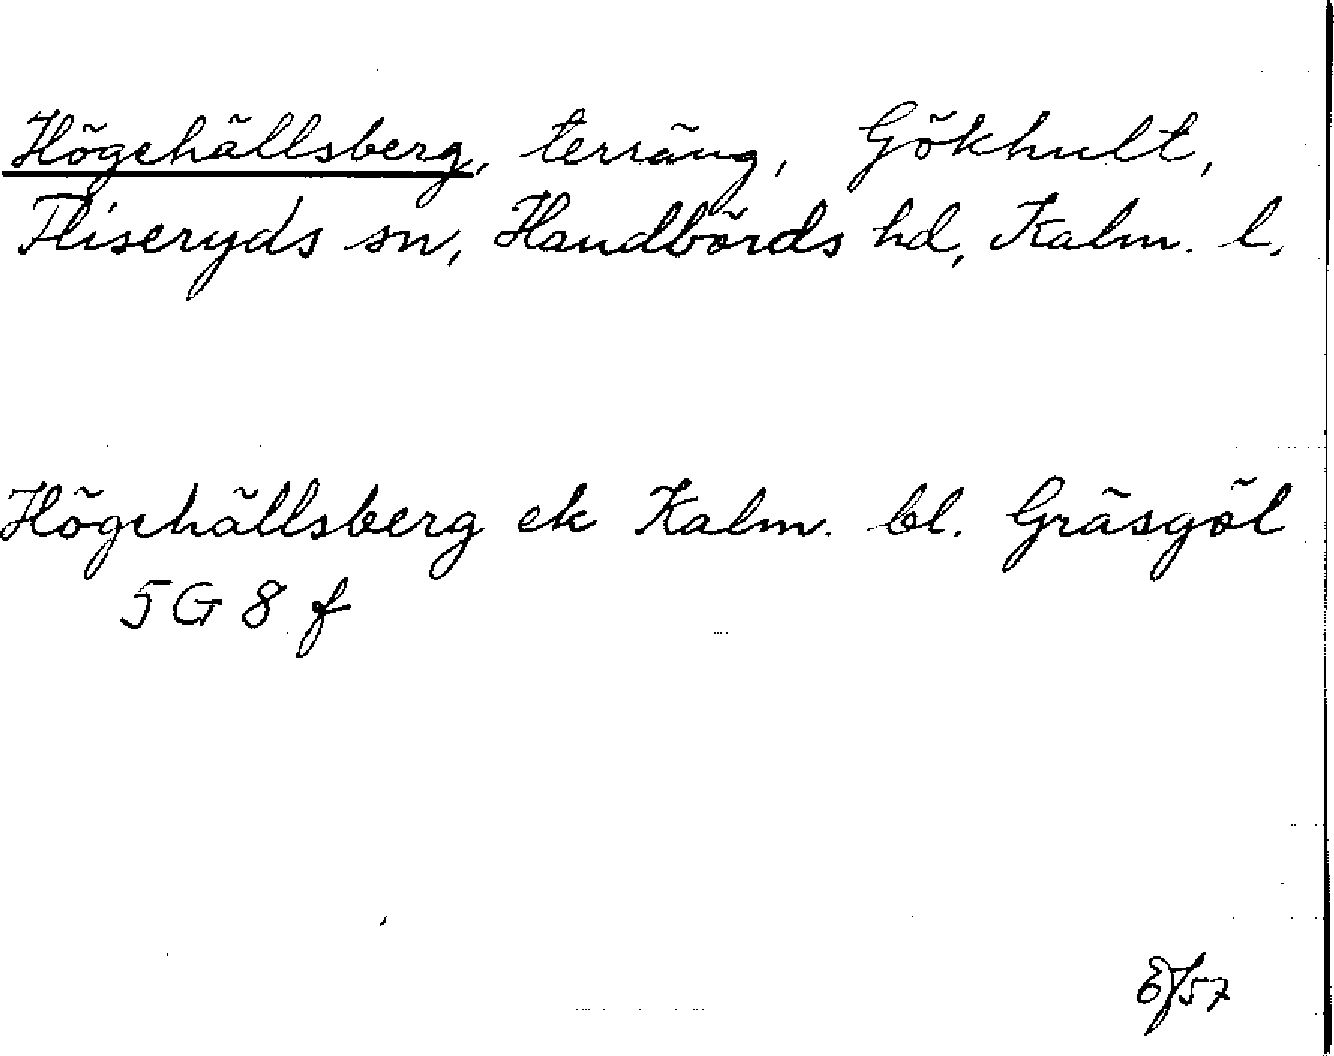 Högehällsberg, terräng, Gökhult,
Fliseryds sn, Handbörds hd, Kalm. l.
Högehällsberg ek Kalm. bl. Gräsgöl
5 G 8 f